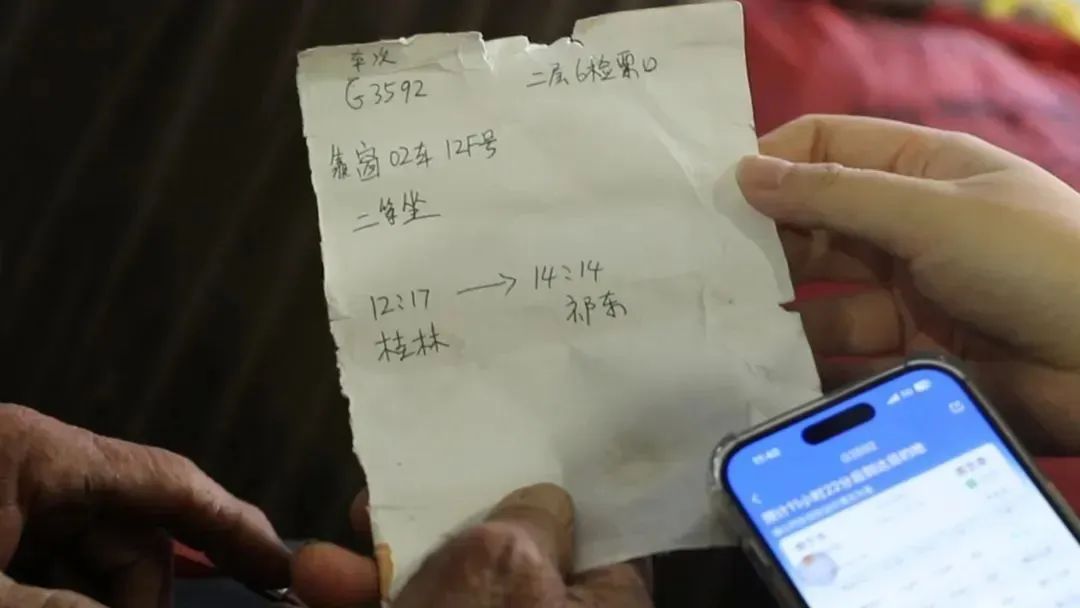 车次
G3592 二层6检票口
靠窗 02车 12F号
二等坐
12:17 → 14:14
桂林 祁东